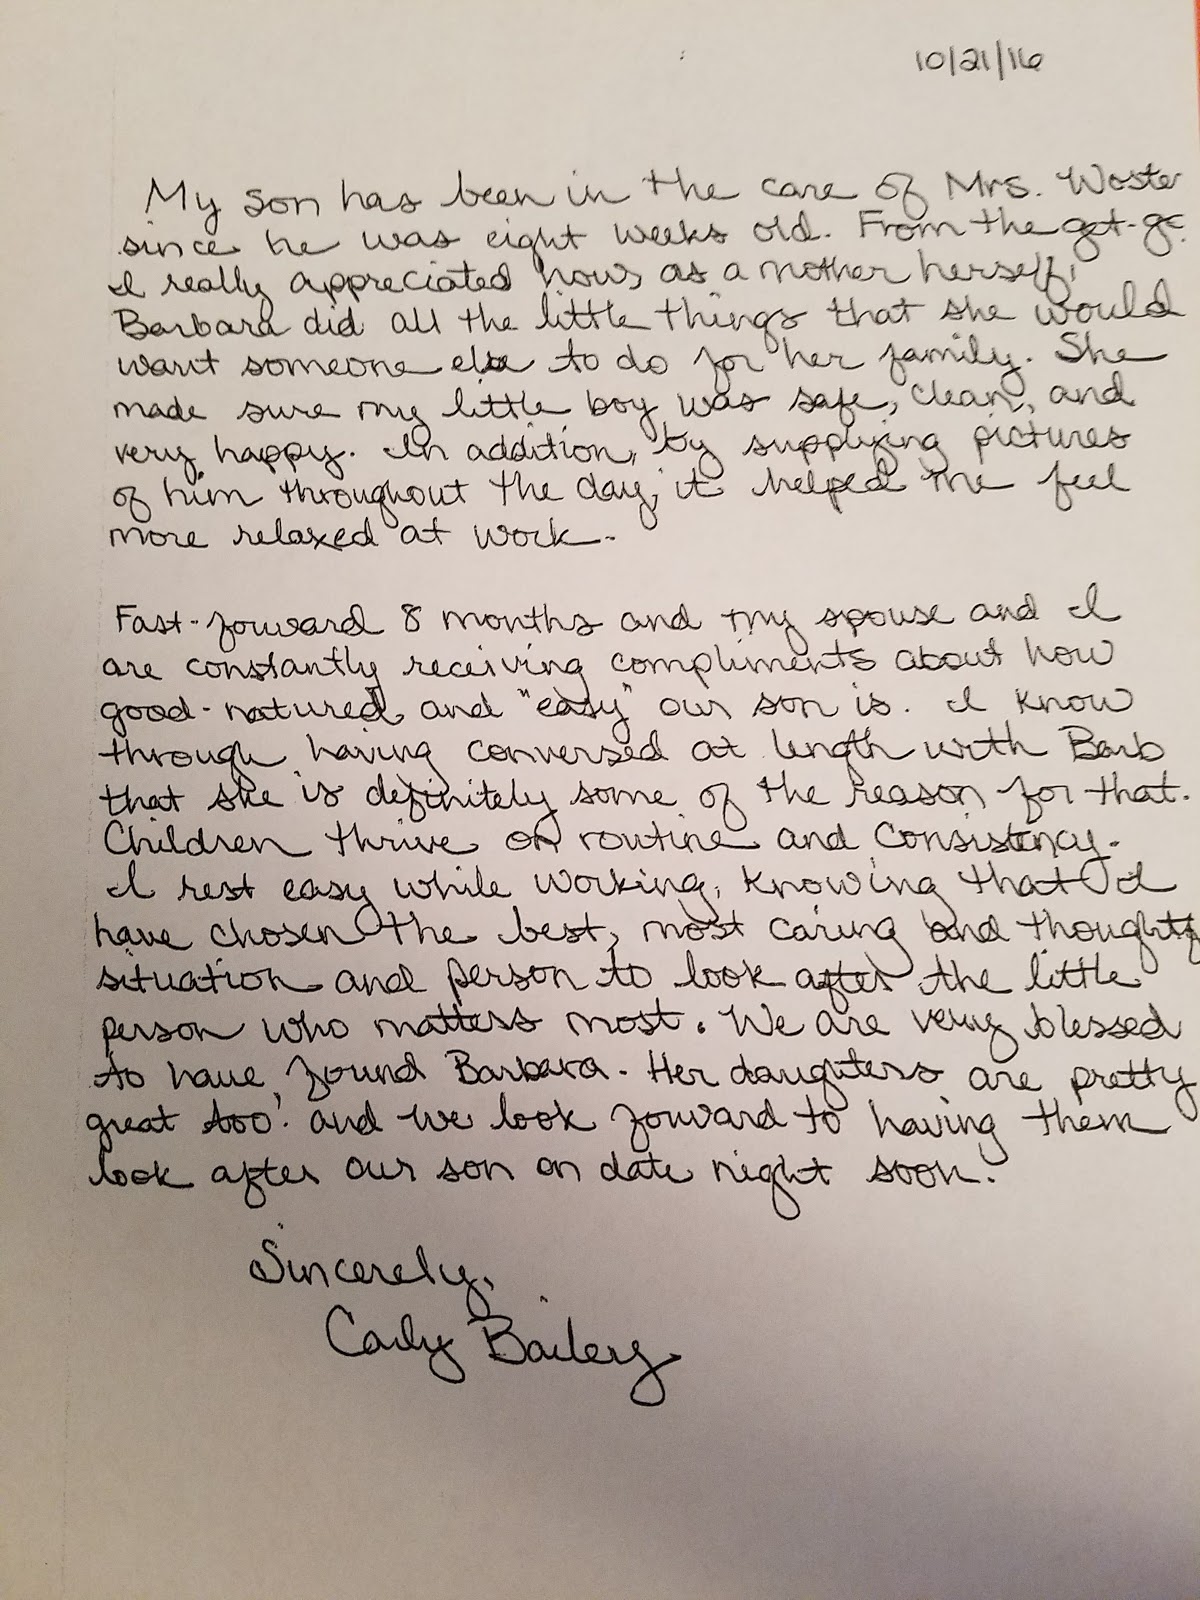 10/21/16
My son has been in the care of Mrs. Woster
since he was eight weeks old. From the get-go
I really appreciated how, as a mother herself,
Barbara did all the little things that she would
want someone else to do for her family. She
made sure my little boy was safe, clean, and
very happy. In addition, by supplying pictures
of him throughout the day, it helped me feel
more relaxed at work.
Fast-forward 8 months and my spouse and I
are constantly receiving compliments about how
good-natured and "easy" our son is. I know
through having conversed at length with Barb
that she is definitely some of the reason for that.
Children thrive on routine and consistency.
I rest easy while working, knowing that I
have chosen the best, most caring and
situation and person to look after the little
person who matters most. We are very blessed
to have found Barbara. Her daughters are pretty
great too! and we look forward to having them
look after our son on date night soon.
Sincerely,
Carly Bailery